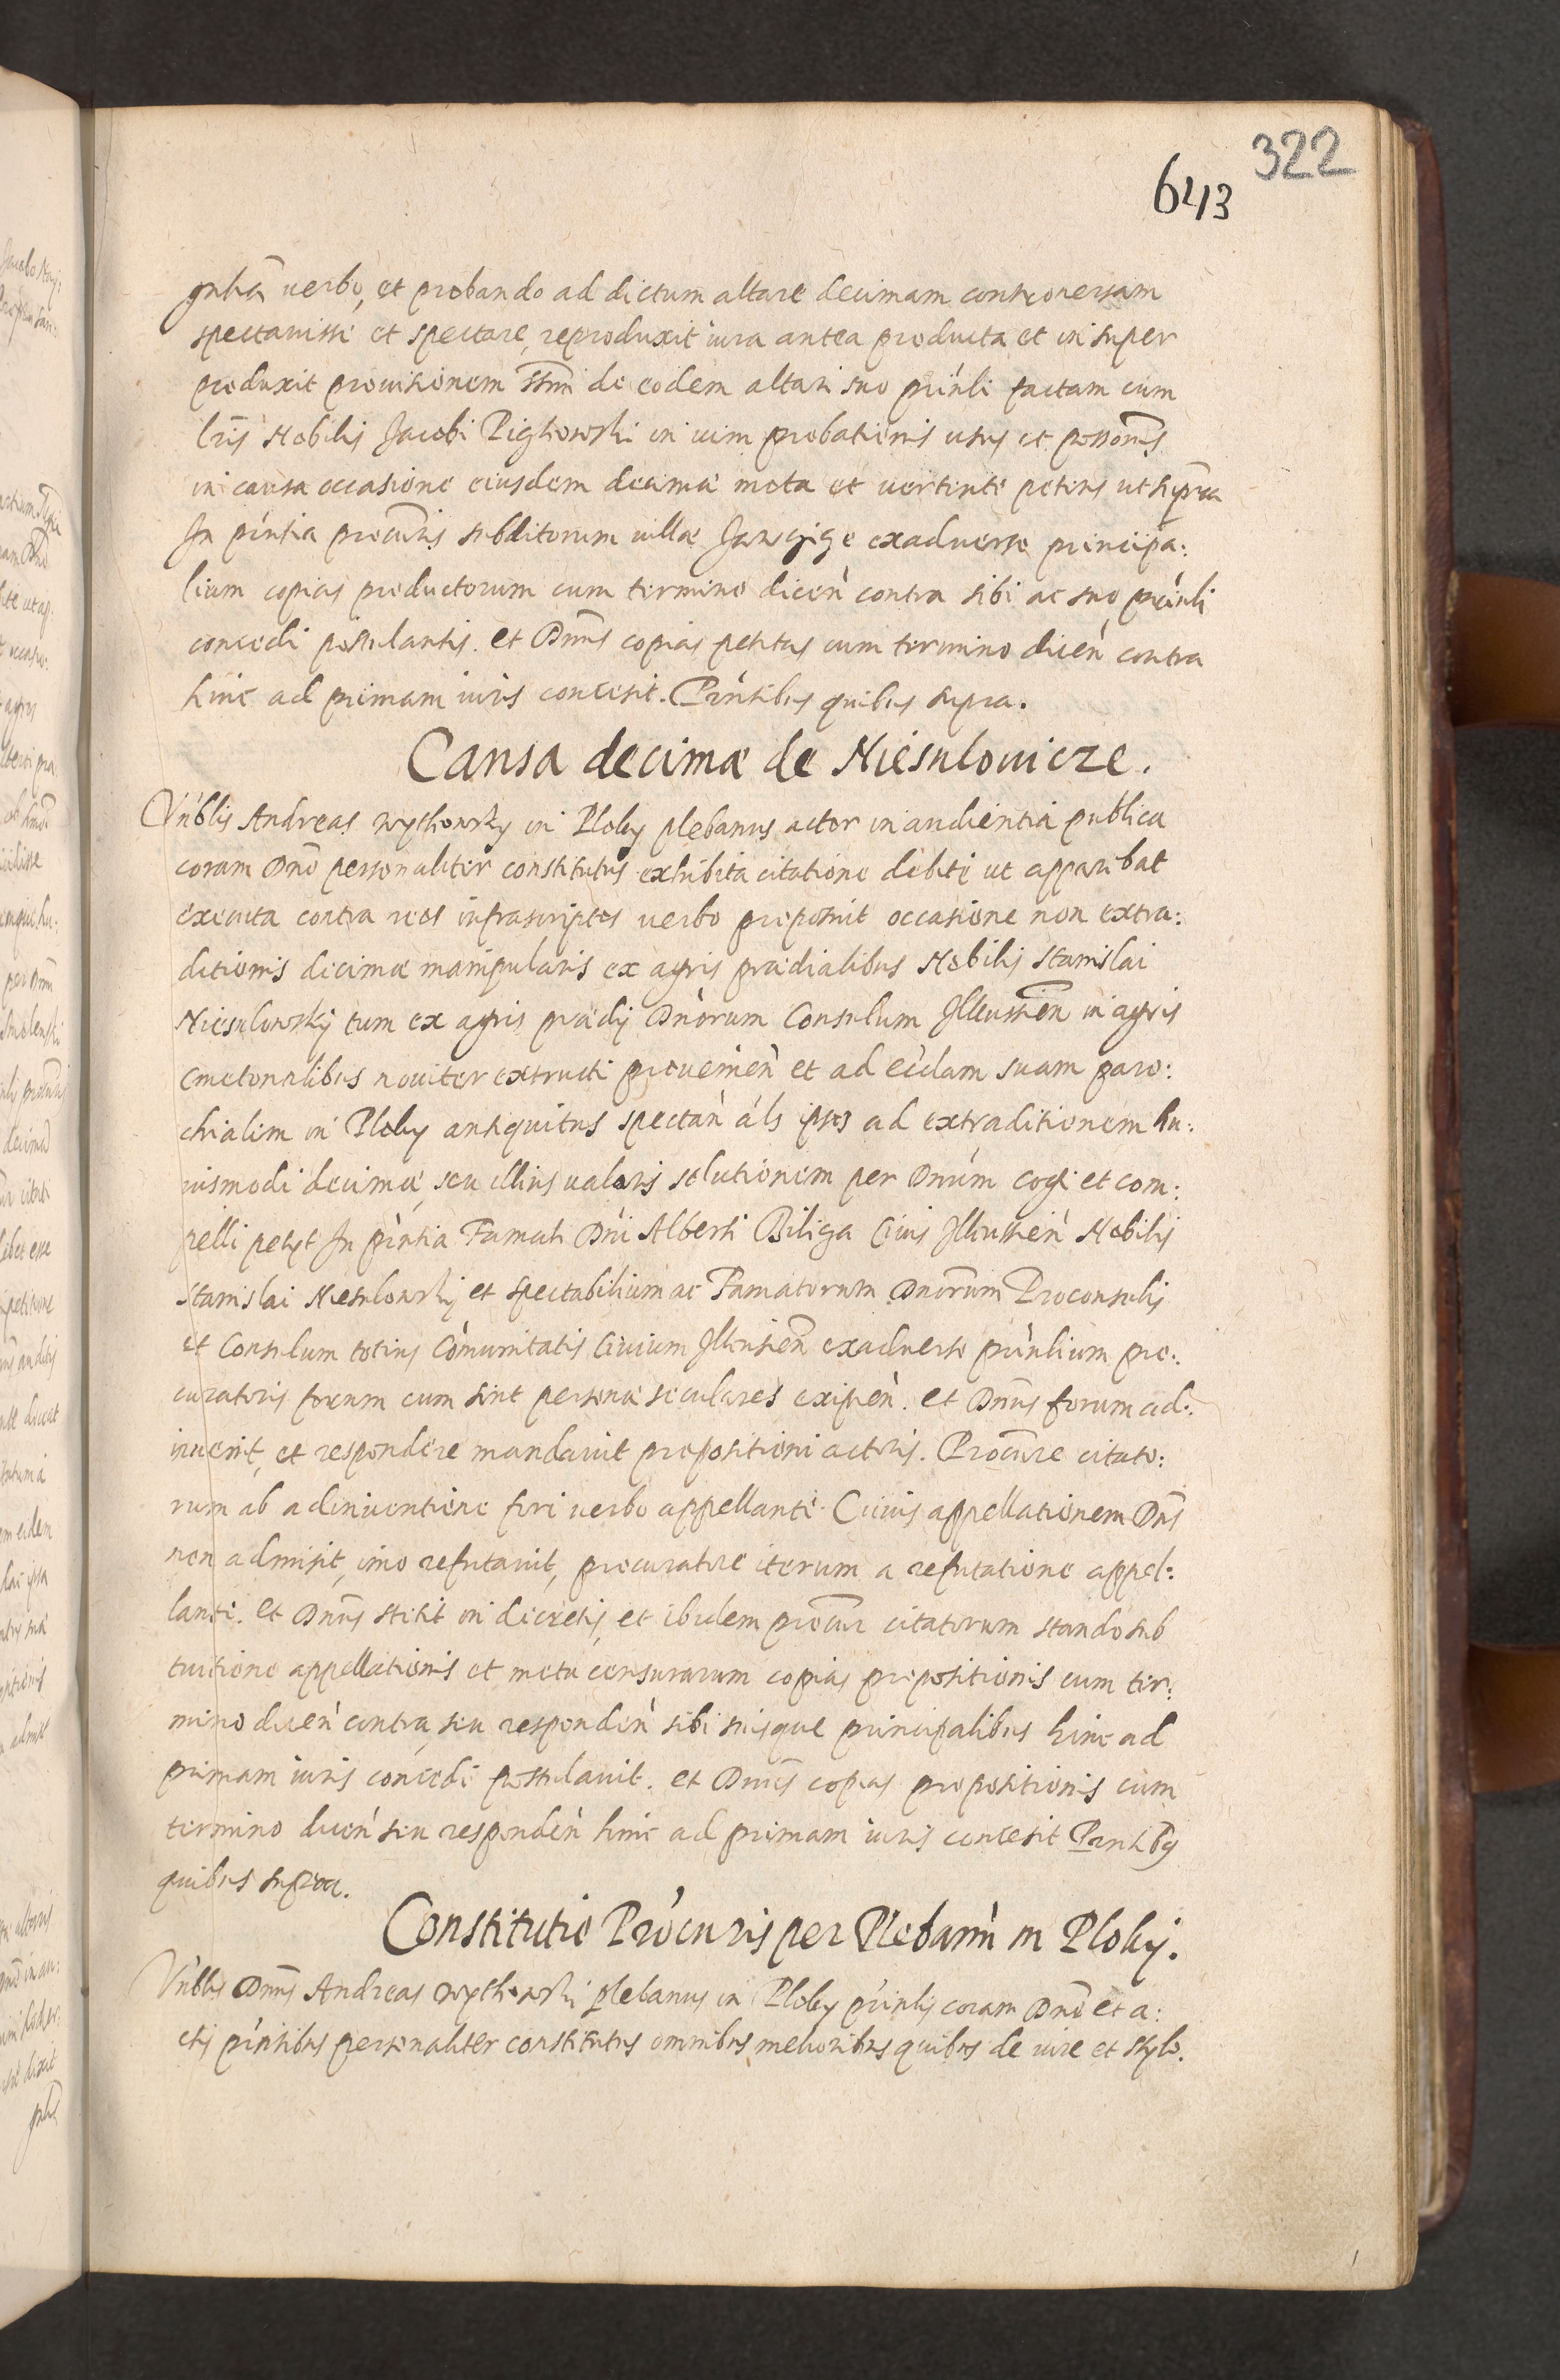 322
643
verbo, et probando ad dictum altare decimam controversam
spectauisse et spectare, reproduxit iura antea producta et in super
produxit prouisionem de eodem altari suo prin̄li factam cum
lr̄is Nobilis Jacobi Pigłowski in uim probationis usus et poss̄onis
in causa occasione eiusdem decimæ mota et uertente petens ut supra
In pn̄tia procur̄is subditorum uillæ exaduerso principa:
lium copias productorum cum termino dicen̄ contra sibi ac suo prin̄li
concedi postulantis. et Dn̄us copias petitas cum termino dicen̄ contra
hinc ad primam iuris concessit. Pn̄tibus quibus supra.
Causa decimæ de Niesulouicze.
Vn̄blis Andreas Wythowsky in Ploky plebanus actor in audientia publica
coram Dn̄o personaliter constitutus exhibita citatione debite ut apparebat
executa contra reos infrascriptos uerbo proposuit occasione non extra:
ditionis decimæ manipularis ex agris prædialibus Nobilis Stanislai
Niesulowskj tum ex agris prædij Dn̄orum Consulum Illkussien̄ in agris
cmetonalibus nouiter extructi prouenien̄ et ad ecc̄lam suam paro:
chialem in Ploky antiquitus spectan̄ al̄s ipsos ad extraditionem hu:
iusmodi decimæ, seu illius ualoris solutionem per Dn̄um cogi et com:
pelli petyt In pn̄tia Famati Dn̄i Alberti Biliga Ciuis Illkussien̄ Nobilis
Stanislai Niesulowskj et spectabilium ac Famatorum Dnorum Proconsulis
et Consulum totius Com̄unitatis Ciuium Ilkussien̄ exaduerso prin̄lium pro:
curatoris forum cum sint personæ seculares excipien̄. et Dn̄us forum ad:
inuenit, et respondere mandauit propositioni actoris. Procur̄e citato:
rum ab adinuentione fori uerbo appellante. Cuius appellationem Dn̄s
non admisit, imo refutauit, procuratore iterum a refutatione appel:
lante. et Dn̄us stetit in decretis, et ibidem procur̄ citatorum stando sub
tuitione appellationis et metu censurarum copias propositionis cum ter:
mino dicen̄ contra, seu responden̄ sibi suisque principalibus hinc ad
primam iuris concedi postulauit. et Dn̄us copias propositionis cum
termino dicen̄ seu responden̄ hinc ad primam iuris concessit Pn̄tibus
quibus supra.
Constitutio Procuris per Plebanu̇ in Ploky.
Vn̄blis Dn̄us Andreas Wythowski plebanus in Ploky prin̄lis coram Dn̄o et a:
ctis pn̄tibus personaliter constitutus omnibus melioribus quibus de iure et stylo.